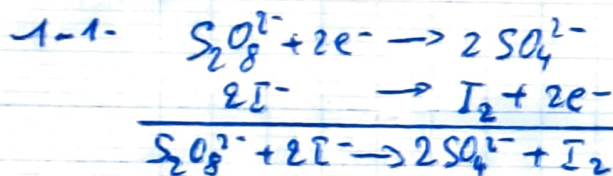 1-1- S₂O₈²⁻ + 2e⁻ → 2 SO₄²⁻
2I⁻ → I₂ + 2e⁻
S₂O₈²⁻ + 2I⁻ → 2SO₄²⁻ + I₂